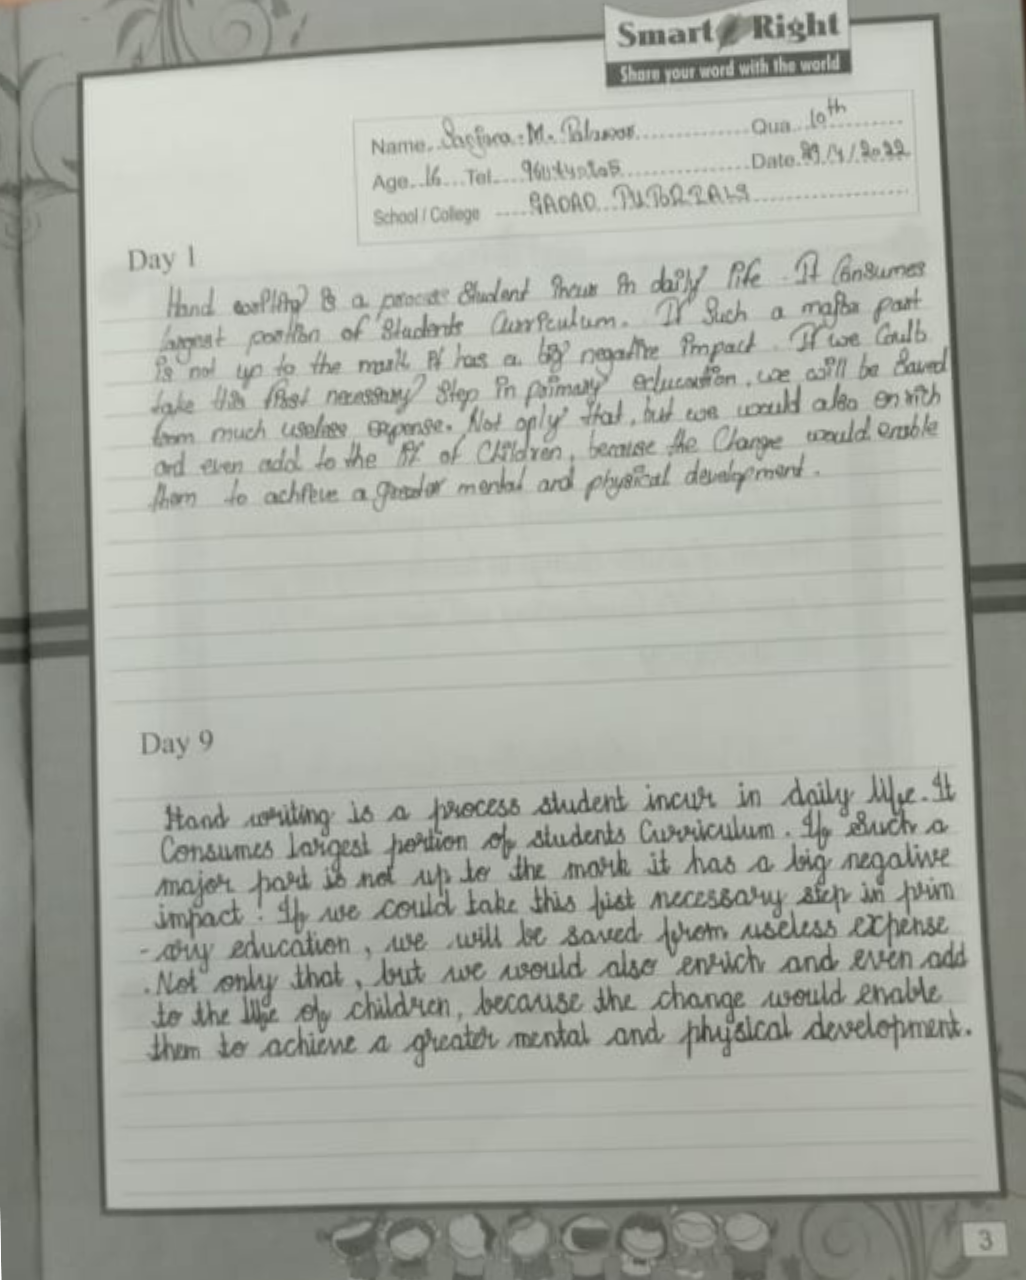 Smart Right
Share your word with the world
Name M. Qua 10th
Age 16 Tel Date 29/4/2022
School / College GADAD TUTORIALS
Day 1
Hand writing is a process student incur in daily life. It Consumes
largest portion of students Curriculum. If Such a major part
is not up to the mark it has a big negative impact. If we Coulb
take this first necessary step in primary education, we will be saved
from much useless expense. Not only that, but we would also enrich
and even add to the life of Children, because the Change would enable
them to achieve a greater mental and physical development.
Day 9
Hand writing is a process student incur in daily life. It
Consumes largest portion of students Curriculum. If Such a
major part is not up to the mark it has a big negative
impact. If we could take this fist necessary step in prim
-ary education, we will be saved from useless expense
. Not only that, but we would also enrich and even add
to the life of children, because the change would enable
them to achieve a greater mental and physical development.
3